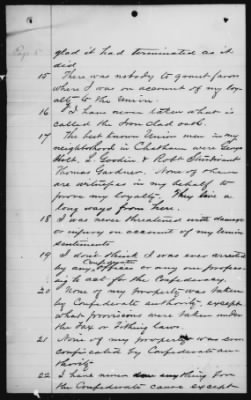 Page 5
glad it had terminated as it
did.
15 There was nobody to grant favor
where I was on account of my loy-
alty to the Union.
16 I have never taken what is
called the Iron Clad oath.
17 The best known Union men in my
neighborhood in Chatham were George
Holt, L. Goodin & Robt Sturdivant
Thomas Gardner. None of whom
are witnesses in my behalf to
prove my loyalty. They live a
long ways from here.
18 I was never threatened with damage
or injury on account of my Union
sentiments
19 I don't think I was ever arrested
by any Confederate officer or any one profess-
ing to act for the Confederacy.
20 None of my property was taken
by Confederate authority, except
what provisions were taken under
the Tax or Tithing laws.
21 None of my property was ever
confiscated by Confederate au-
thority
22 I have never done anything for
the Confederate cause except